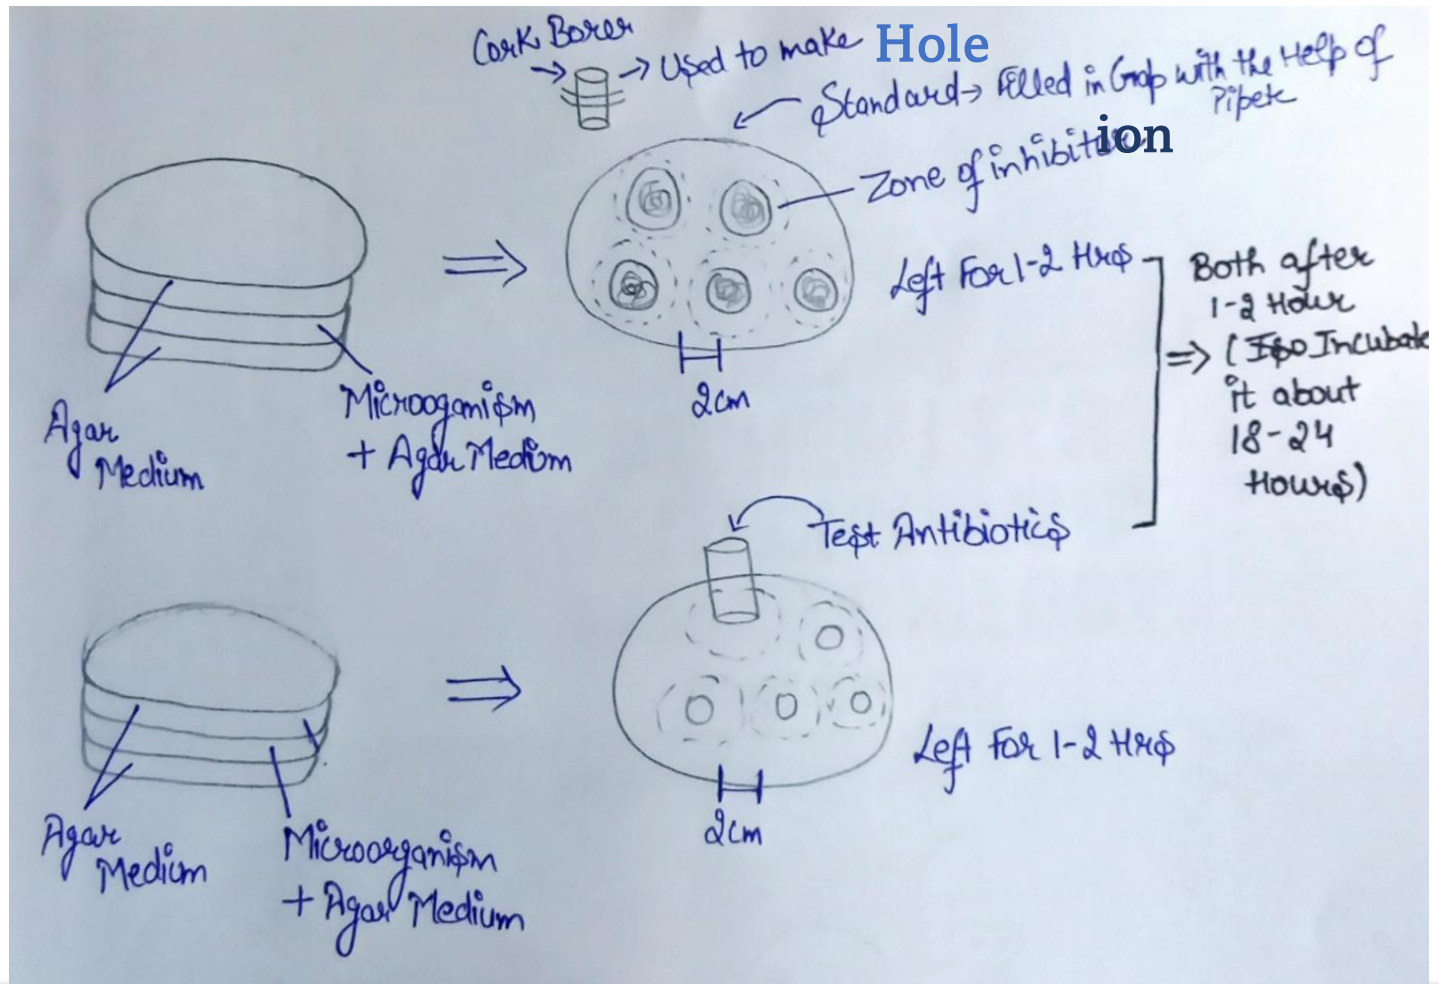 Cork Borer
Used to make Hole
Standard → Filled in Gap with the Help of
Pipete
Zone of inhibition
Left For 1-2 Hrs
Both after
1-2 Hour
( Incubate
it about
18-24
Hours)
2cm
Agar
Medium
Microoganism
+ Agar Medium
Test Antibiotics
Left For 1-2 Hrs
2cm
Agar
Medium
Microorganism
+ Agar Medium